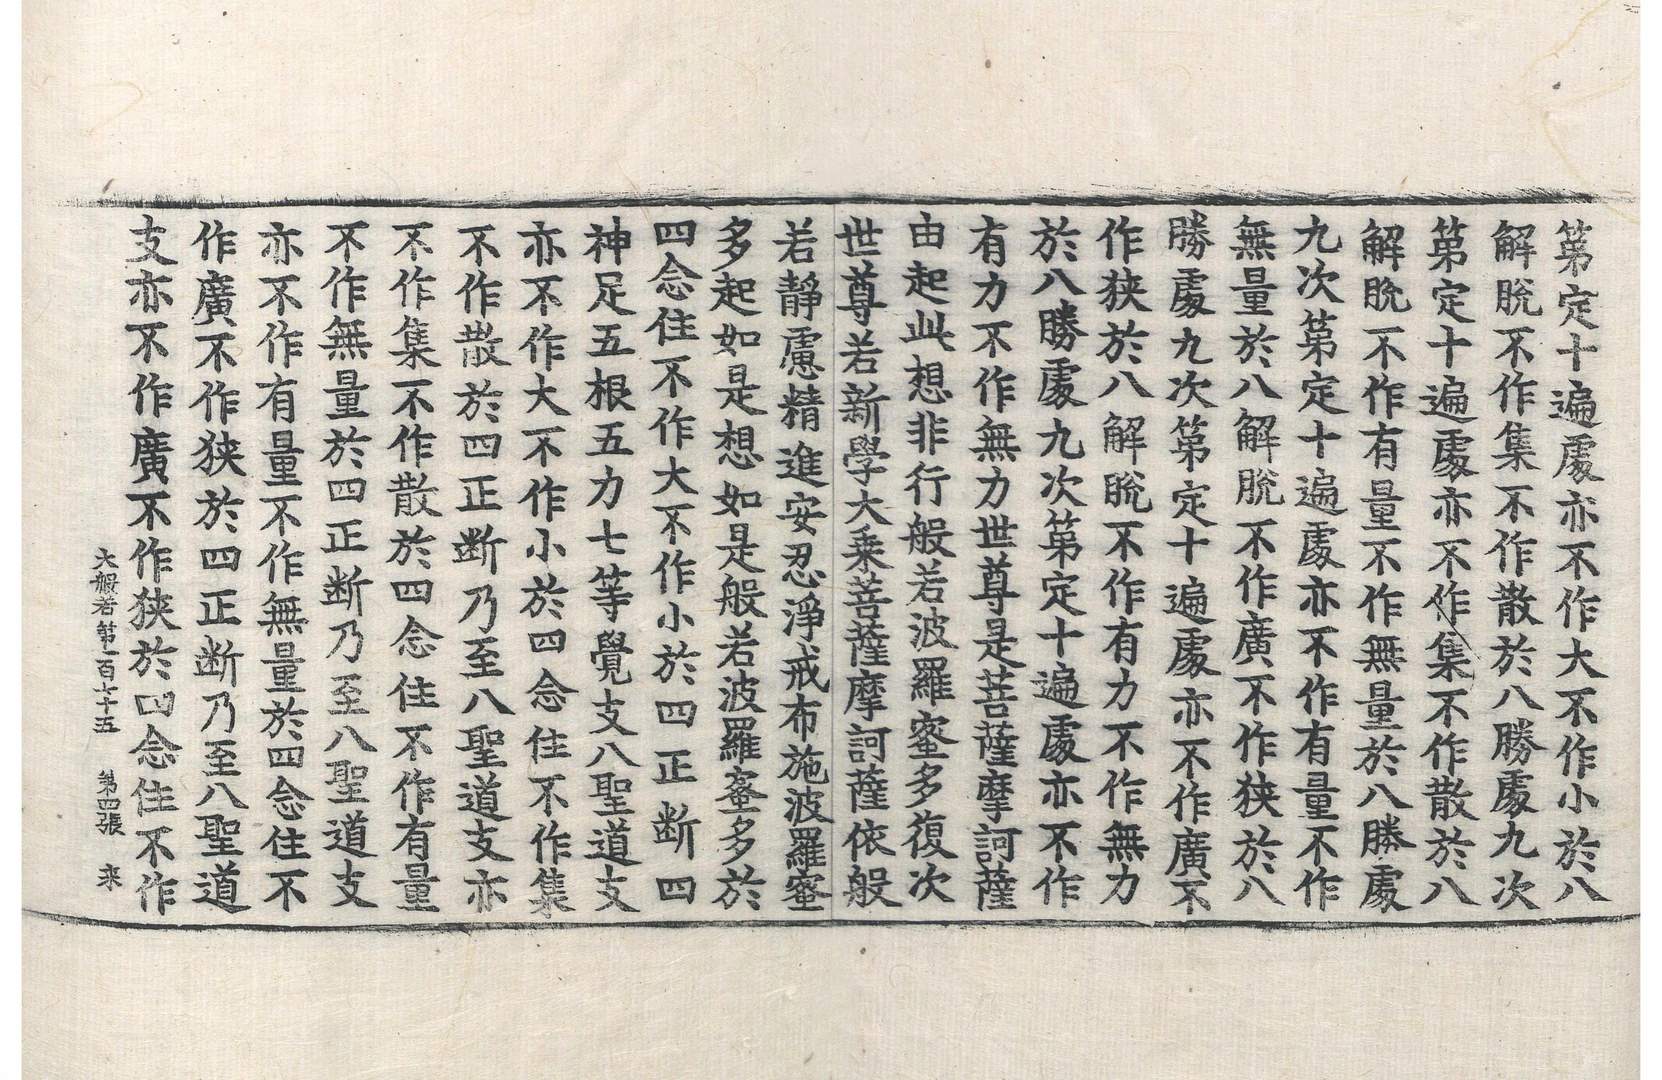 第定十遍處亦不作大不作小於八
解脫不作集不作散於八勝處九次
第定十遍處亦不作集不作散於八
解脫不作有量不作無量於八勝處
九次第定十遍處亦不作有量不作
無量於八解脫不作廣不作狹於八
勝處九次第定十遍處亦不作廣不
作狹於八解脫不作有力不作無力
於八勝處九次第定十遍處亦不作
有力不作無力世尊是菩薩摩訶薩
由起此想非行般若波羅蜜多復次
世尊若新學大乘菩薩摩訶薩依般
若靜慮精進安忍淨戒布施波羅蜜
多起如是想如是般若波羅蜜多於
四念住不作大不作小於四正斷四
神足五根五力七等覺支八聖道支
亦不作大不作小於四念住不作集
不作散於四正斷乃至八聖道支亦
不作集不作散於四念住不作有量
不作無量於四正斷乃至八聖道支
亦不作有量不作無量於四念住不
作廣不作狹於四正斷乃至八聖道
支亦不作廣不作狹於四念住不作
大般若第一百七十五 第四張 來